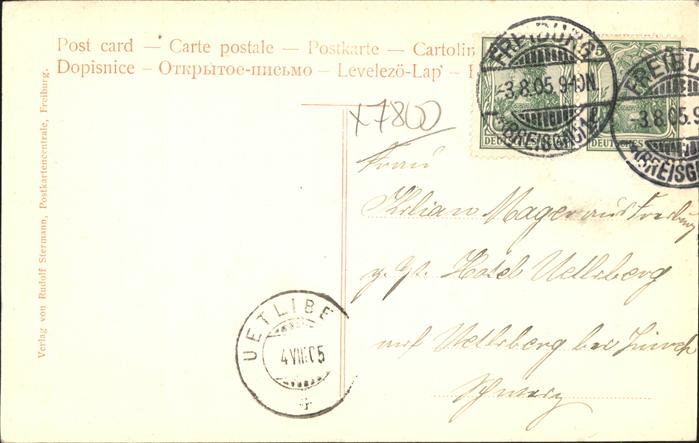 Post card — Carte postale — Postkarte — Cartolin
Dopisnice — Открытое-письмо — Levelezö-Lap —
FREIBURG
-3.8.05.9-10N.
(BREISGAU)
FREIBU
-3.8.05.9
(BREISG
DEUTSCHES
x7800
Frau
Kilian Mager aus Freiburg
z. Zt. Hotel Uetliberg
auf Uetliberg bei Zürich
Schweiz
UETLIBE
4 VIII 05
Verlag von Rudolf Stermann, Postkartencentrale, Freiburg.